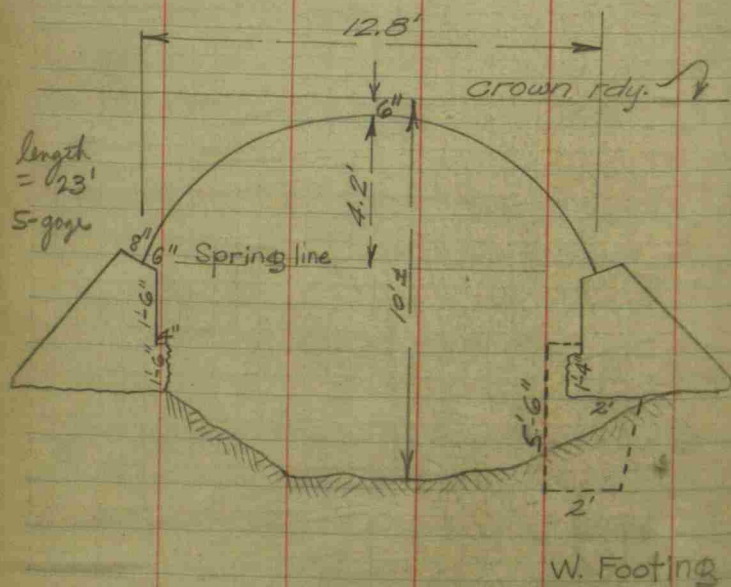 12.8'
crown rdy.
6"
length
= 23'
5-gage
4.2'
8"
6"
Spring line
10'±
1'-6"
4"
1'-6"
1'-4"
5'-6"
2'
2'
W. Footing